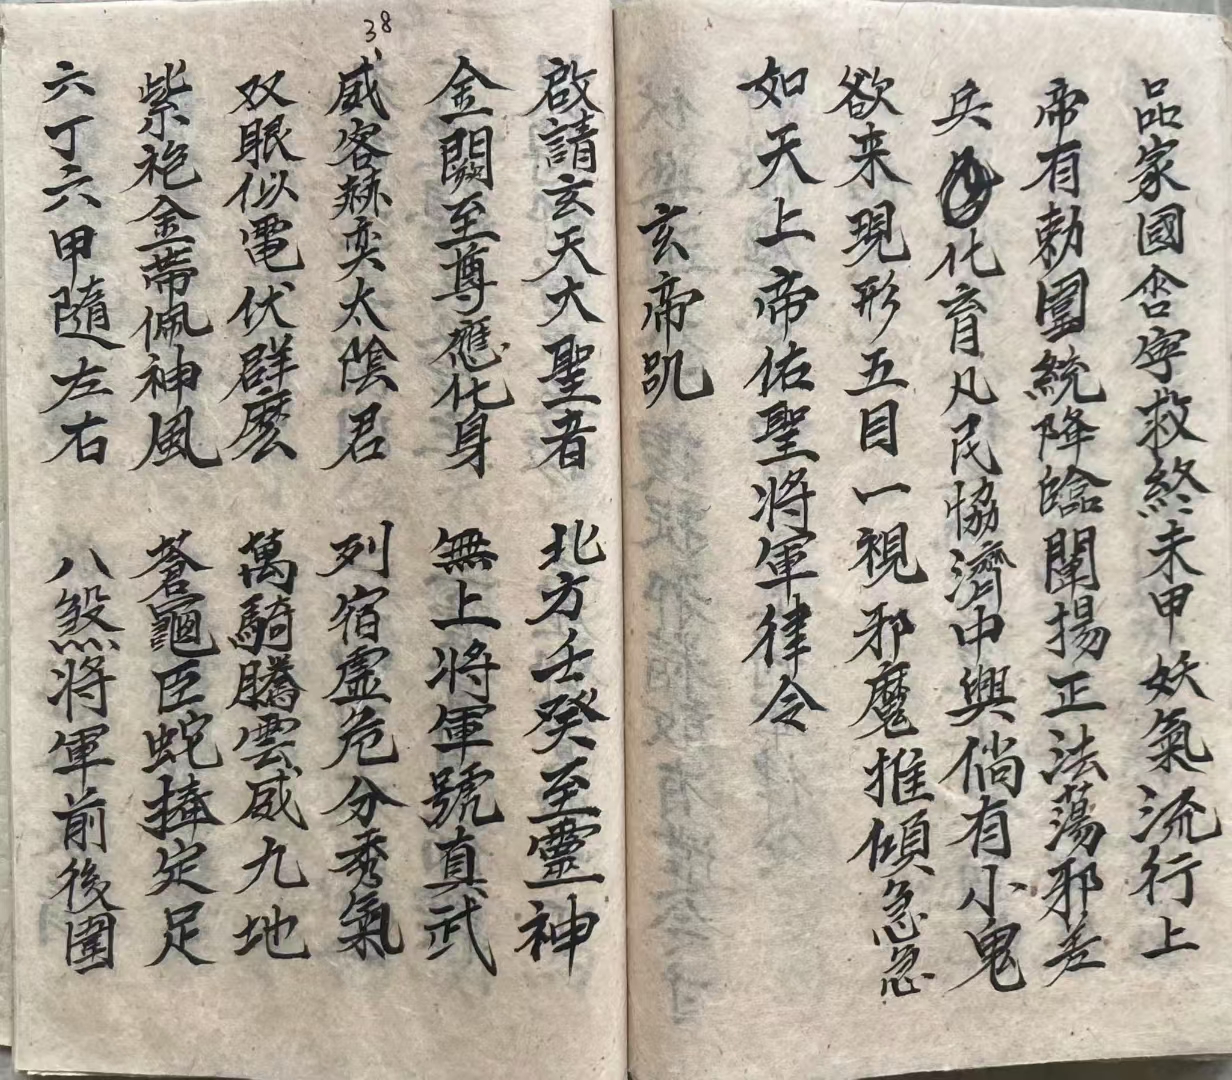 品家國舍寧救終未甲妖氣流行上
帝有勅圍統降臨闡揚正法蕩邪差
兵化育凡民協濟中興倘有小鬼
欲来現形五目一視邪魔推傾急急
如天上帝佑聖将軍律令
玄帝凱
啟請玄天大聖者 北方壬癸至靈神
金闕至尊應化身 無上将軍號真武
威容赫奕太陰君 列宿虛危分秀氣
双眼似電伏群麽 萬騎騰雲威九地
紫袍金帶佩神風 蒼龜臣蛇捧定足
六丁六甲隨左右 八煞将軍前後圍
38